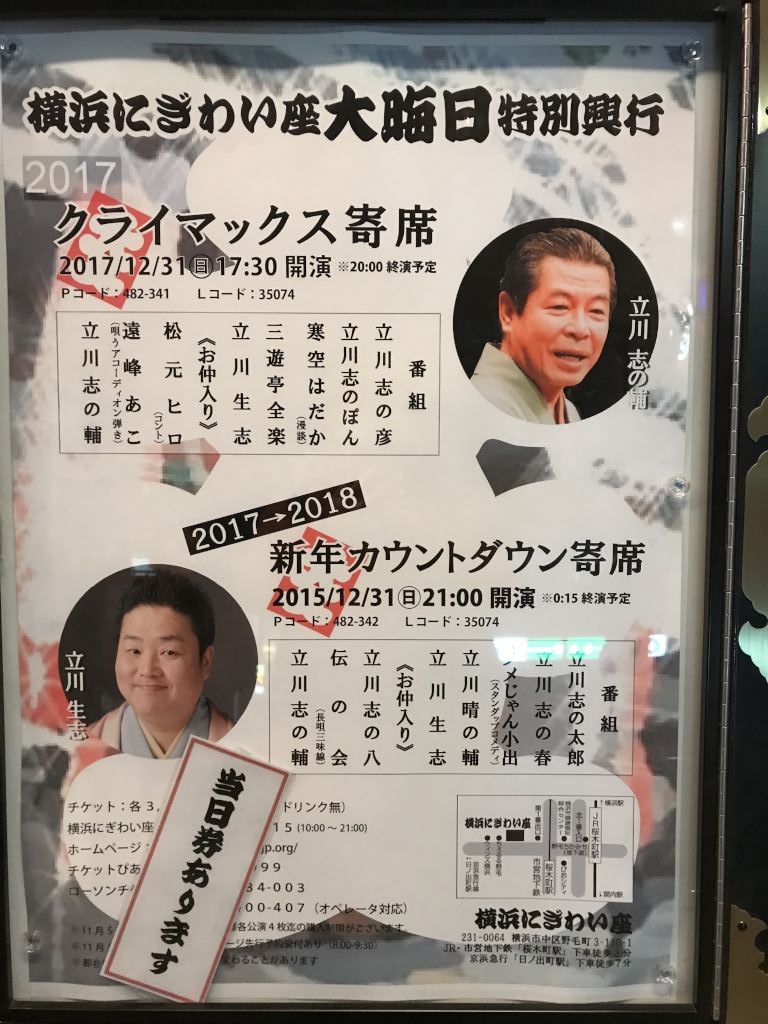 横浜にぎわい座大晦日特別興行
2017
クライマックス寄席
2017/12/31㊐17:30 開演 ※20:00 終演予定
Pコード：482-341　Lコード：35074
番組
立川志の彦
立川志のぽん
寒空はだか（漫談）
三遊亭全楽
立川生志
《お仲入り》
松元ヒロ（コント）
遠峰あこ（唄うアコーディオン弾き）
立川志の輔
立川 志の輔
2017→2018
新年カウントダウン寄席
2015/12/31㊐21:00 開演 ※0:15 終演予定
Pコード：482-342　Lコード：35074
番組
立川志の太郎
立川志の春
メじゃん小出（スタンダップコメディ）
立川晴の輔
立川生志
《お仲入り》
立川志の八
伝の会（長唄三味線）
立川志の輔
立川 生志
当日券あります
チケット：各3,
ドリンク無）
横浜にぎわい座
15 (10:00 ～ 21:00)
ホームページ：
jp.org/
チケットぴあ
99
ローソンチケ
34-003
00-407（オペレータ対応）
※11月5
様各公演4枚迄の購入制限がございます。
※11月
ージ先行予約受付あり (8:00-9:30)
※都合
変わることがあります
横浜にぎわい座
横浜駅
JR桜木町駅
関内駅
市営地下鉄
桜木町駅
野毛ちかみち（地下道）
ぴおシティ
南1番出口
北1番入口
ちぇるる野毛
ウィンズ横浜
京浜急行線
日ノ出町駅
横浜にぎわい座
231-0064 横浜市中区野毛町3-110-1
JR・市営地下鉄「桜木町駅」下車徒歩3分
京浜急行「日ノ出町駅」下車徒歩7分